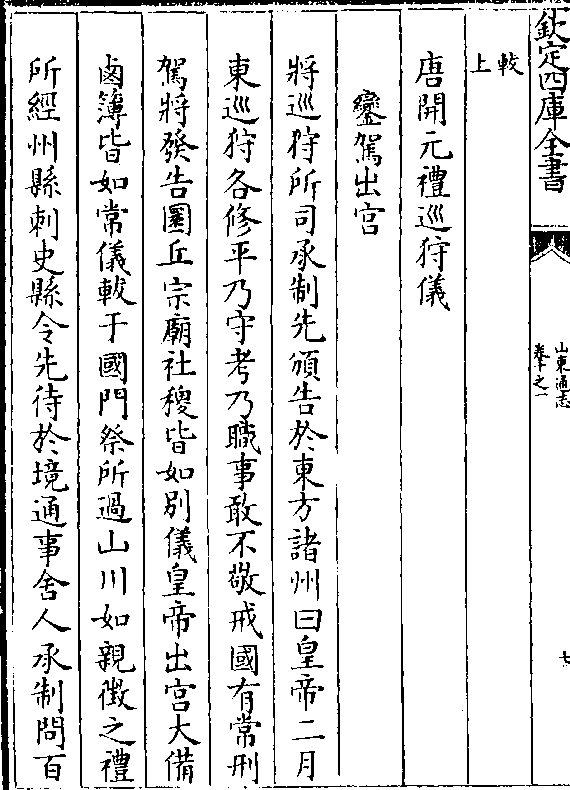 欽定四庫全書
山東通志
卷十之一
七
較
上
唐開元禮巡狩儀
鑾駕出宫
將巡狩所司承制先頒告於東方諸州曰皇帝二月
東巡狩各修平乃守考乃職事敢不敬戒國有常刑
駕將發告圜丘宗廟社稷皆如别儀皇帝出宫大備
鹵簿皆如常儀軷于國門祭所過山川如親徵之禮
所經州縣刺史縣令先待於境通事舍人承制問百